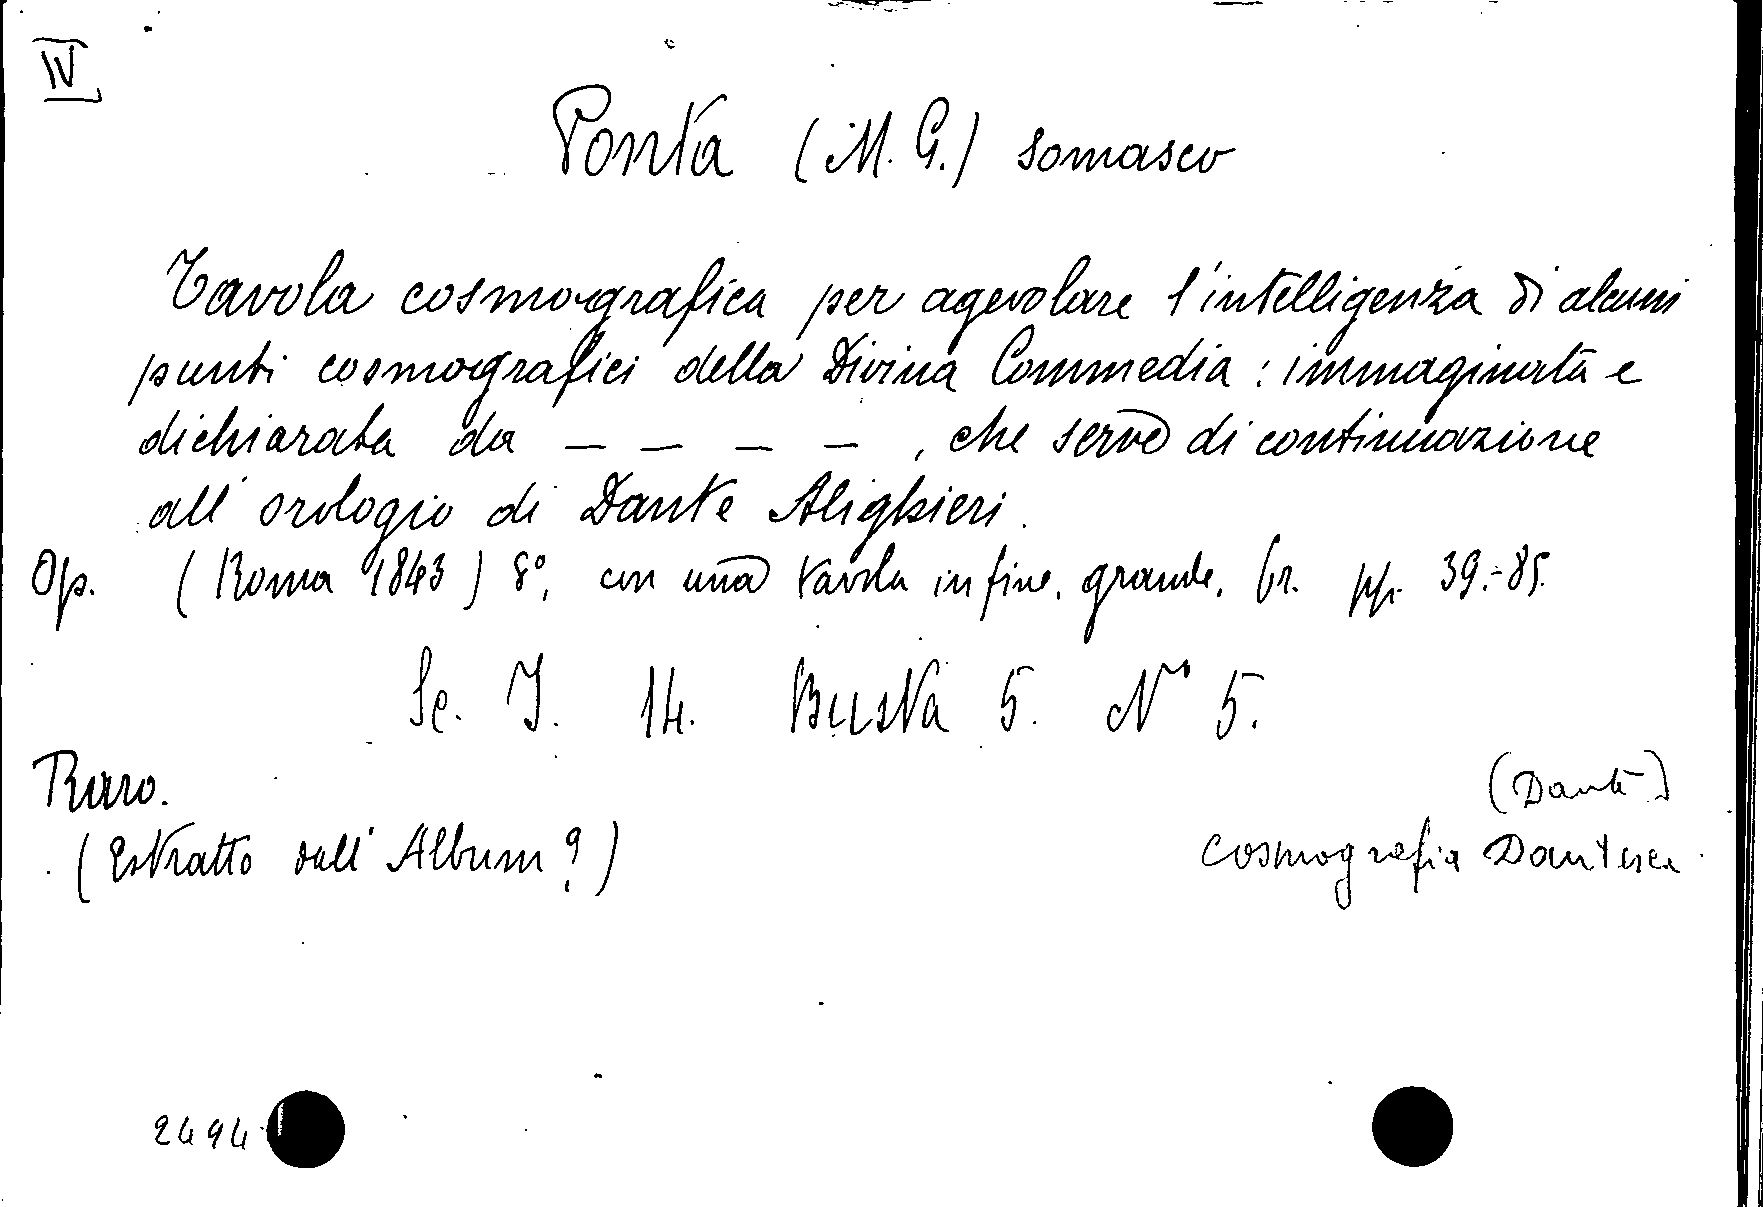 IV
Ponta (M. G.) somasco
Tavola cosmografica per agevolare l'intelligenza di alcuni
punti cosmografici della Divina Commedia: immaginata e
dichiarata da _ _ _ _ , che serve di continuazione
all'orologio di Dante Alighieri.
Op. (Roma 1843) 8°, con una tavola in fine, grande, br. pp. 39.-85.
Sc. I. 14. Busta 5. N° 5.
Raro. (Dante)
(Estratto dall'Album?) Cosmografia Dantesca
2494